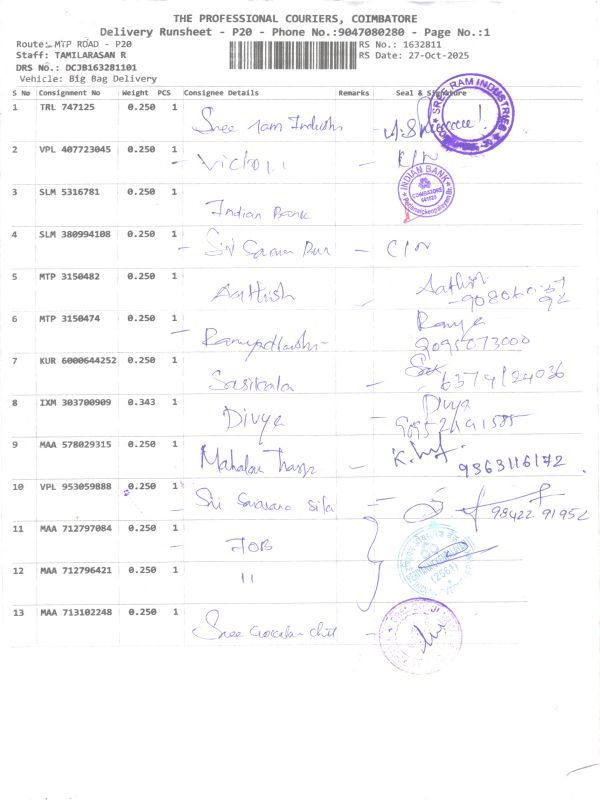 THE PROFESSIONAL COURIERS, COIMBATORE
Delivery Runsheet - P20 - Phone No.:9047080280 - Page No.:1
Route: MTP ROAD - P20 RS No.: 1632811
Staff: TAMILARASAN R RS Date: 27-Oct-2025
DRS No.: DCJB163281101
Vehicle: Big Bag Delivery
S No Consignment No Weight PCS Consignee Details Remarks Seal & Signature
1 TRL 747125 0.250 1
Sree
SREE RAM INDUSTRIES
2 VPL 407723045 0.250 1
3 SLM 5316781 0.250 1
Indian Bank
INDIAN BANK
COIMBATORE
4 SLM 380994108 0.250 1
5 MTP 3150482 0.250 1
Aathish Aathish
6 MTP 3150474 0.250 1
Ramya
9095073000
7 KUR 6000644252 0.250 1
Sasikala 6374124036
8 IXM 303700909 0.343 1
Divya Divya
9 MAA 578029315 0.250 1
9363116172
10 VPL 953059888 0.250 1
Sri
98422 91952
11 MAA 712797084 0.250 1
JOB
12 MAA 712796421 0.250 1
11
13 MAA 713102248 0.250 1
Sree